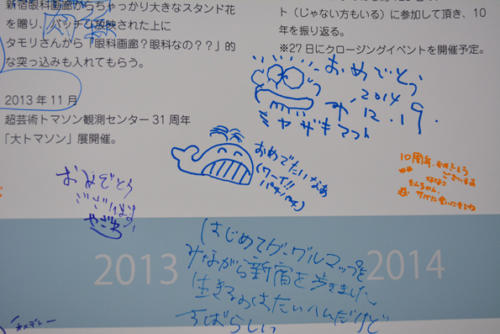 新宿眼科画廊からちゃっかり大きなスタンド花
を贈り、バッチリ放映された上に
タモリさんから「眼科画廊？眼科なの？？」的
な突っ込みも入れてもらう。
2013 年 11 月
超芸術トマソン観測センター 31 周年
「大トマソン」展開催。
ト（じゃない方もいる）に参加して頂き、10
年を振り返る。
※27 日にクロージングイベントを開催予定。
おめでとう
2014
12.19.
ミヤザキ
おめでたいなあ
(ワーイ!!
パチパチ)
おめでとう
ございます
10周年
2013
2014
はじめてグーグルマップを
みながら新宿を歩きました
生きるのはたいへんだけど
すばらしい